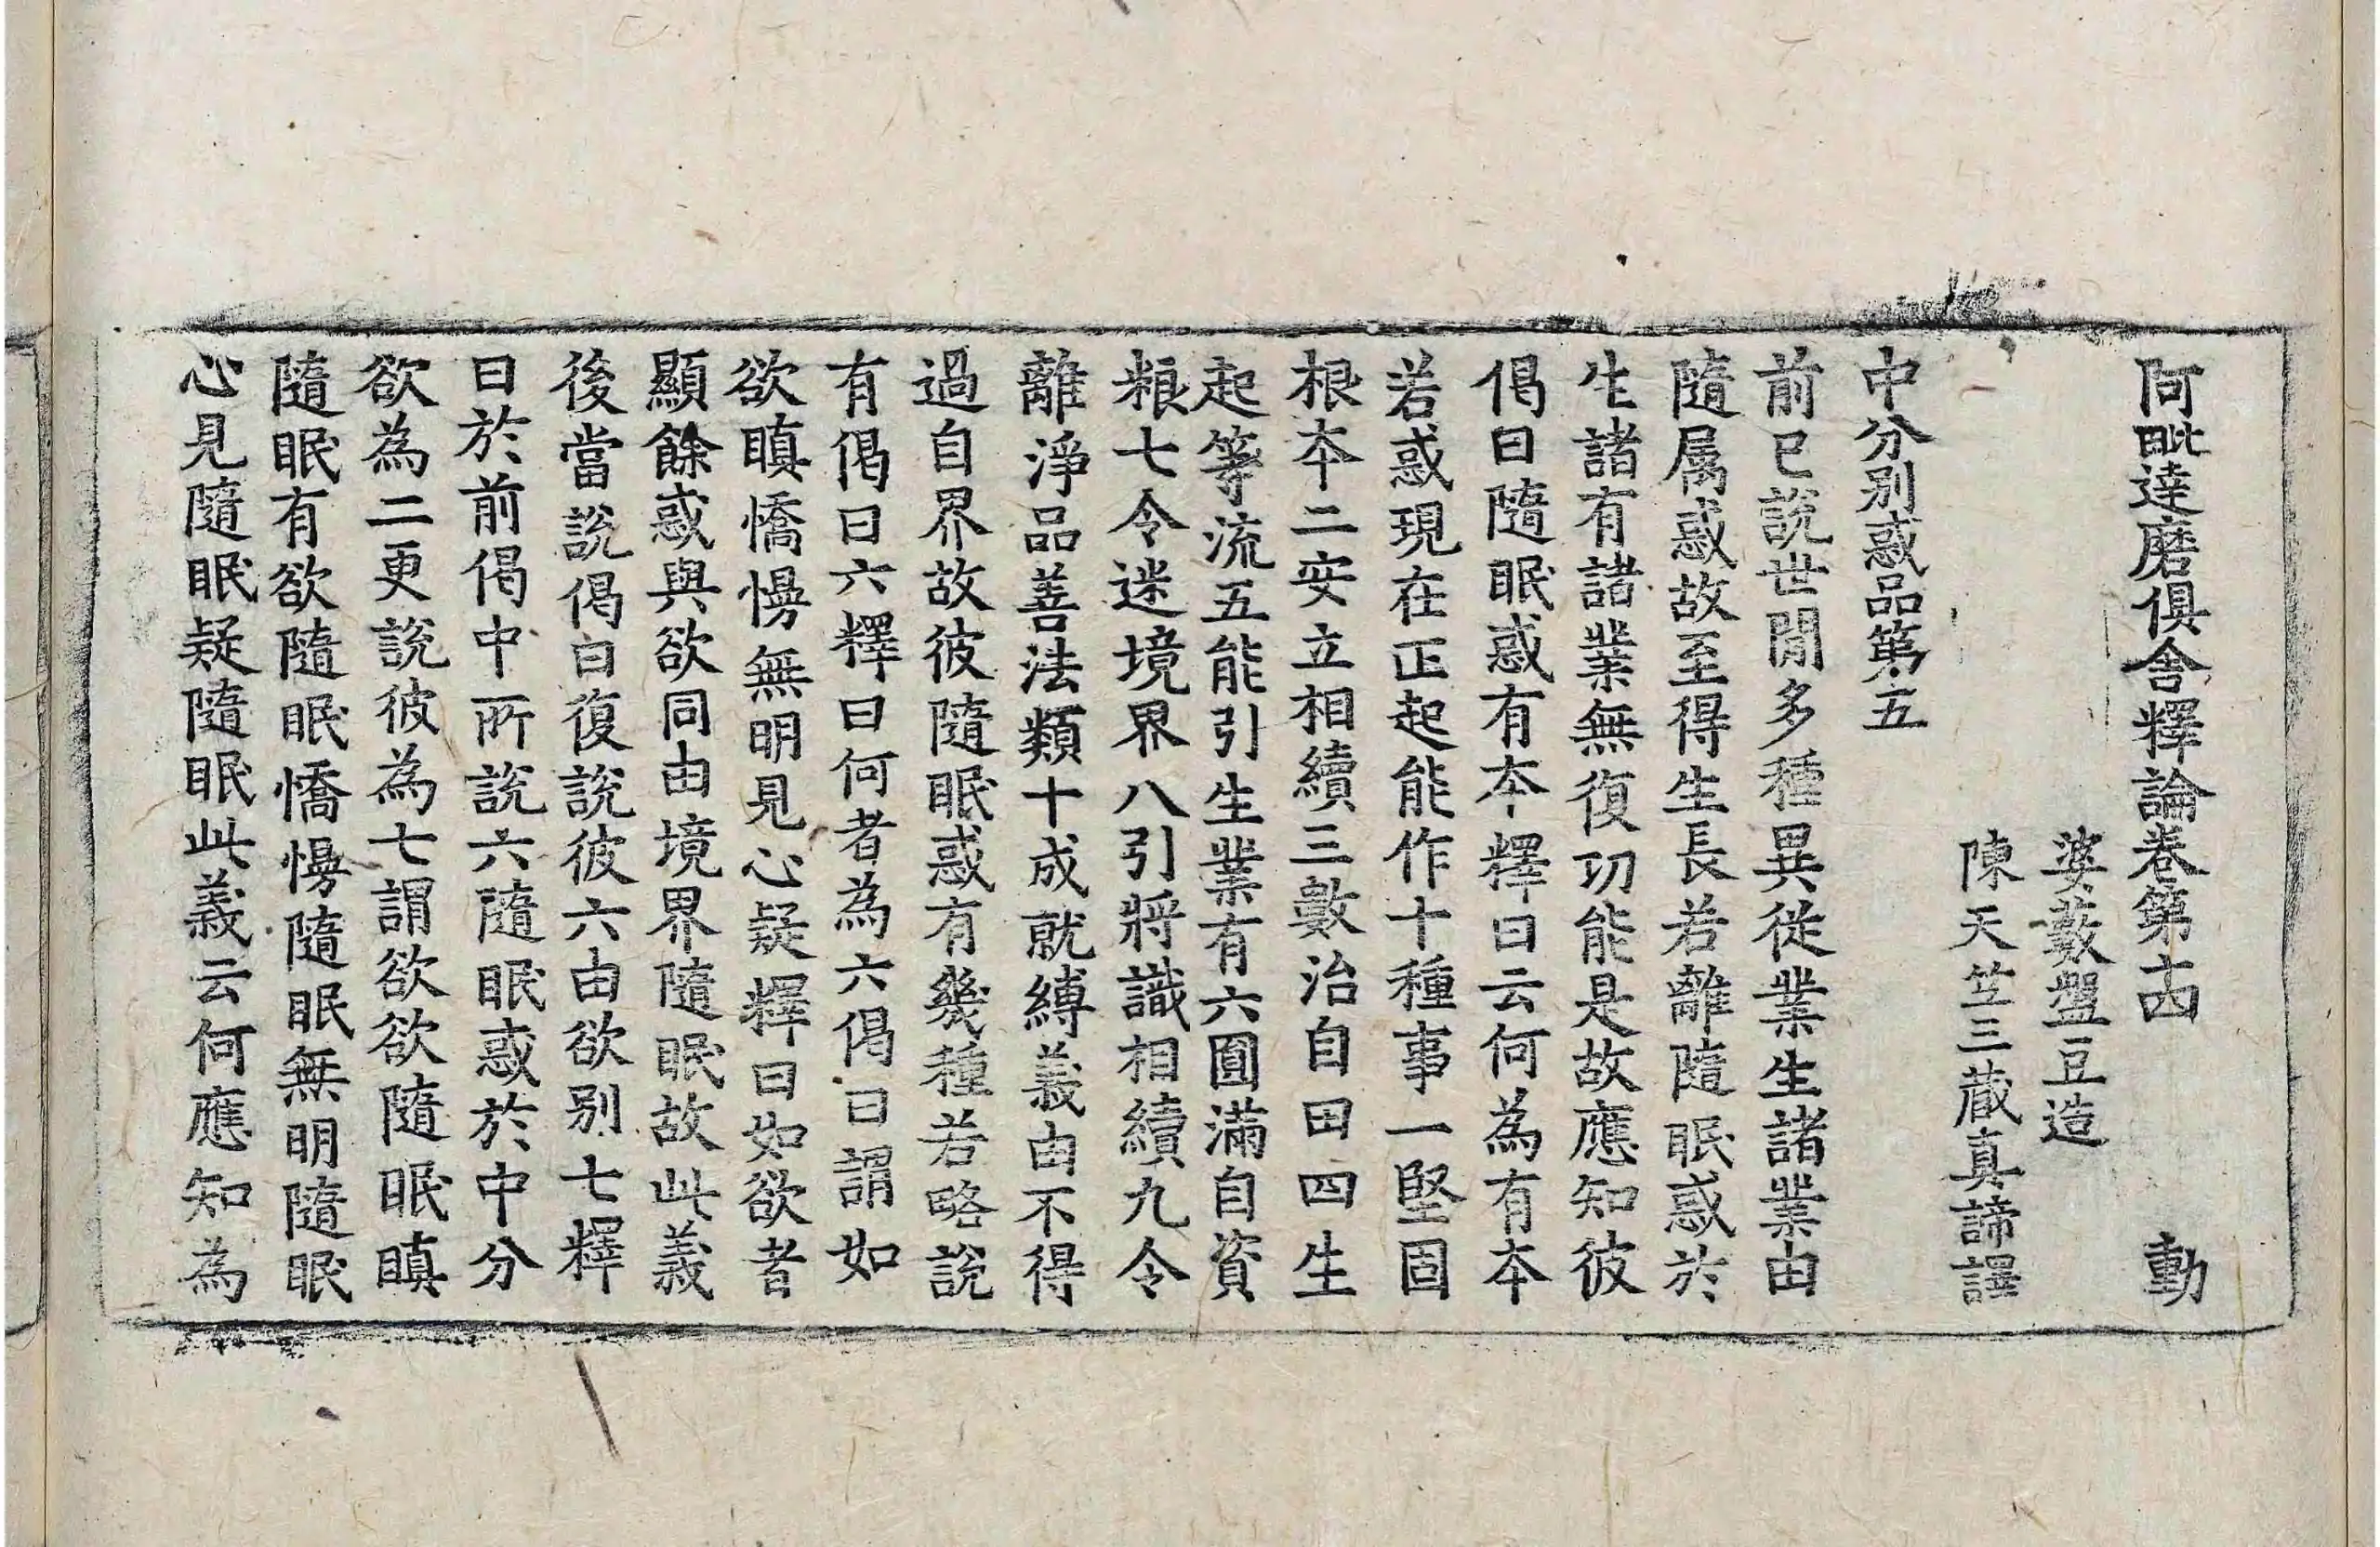 阿毗達磨俱舍釋論卷第十四 動
婆藪盤豆造
陳天竺三藏真諦譯
中分別惑品第五
前已說世間多種異從業生諸業由
隨屬惑故至得生長若離隨眠惑於
生諸有諸業無復功能是故應知彼
偈曰隨眠惑有本釋曰云何為有本
若惑現在正起能作十種事一堅固
根本二安立相續三數治自田四生
起等流五能引生業有六圓滿自資
粮七令迷境界八引將識相續九令
離淨品善法類十成就縛義由不得
過自界故彼隨眠惑有幾種若略說
有偈曰六釋曰何者為六偈曰謂如
欲瞋憍慢無明見心疑釋曰如欲者
顯餘惑與欲同由境界隨眠故此義
後當說偈曰復說彼六由欲別七釋
曰於前偈中所說六隨眠惑於中分
欲為二更說彼為七謂欲欲隨眠瞋
隨眠有欲隨眠憍慢隨眠無明隨眠
心見隨眠疑隨眠此義云何應知為